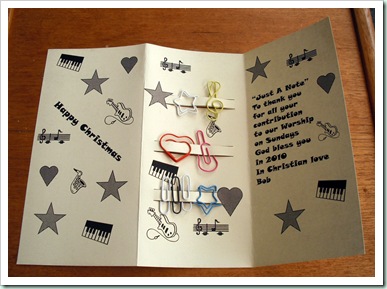 Happy Christmas
"Just A Note"
To thank you
for all your
contribution
to our Worship
on Sundays
God bless you
in 2010
In Christian love
Bob